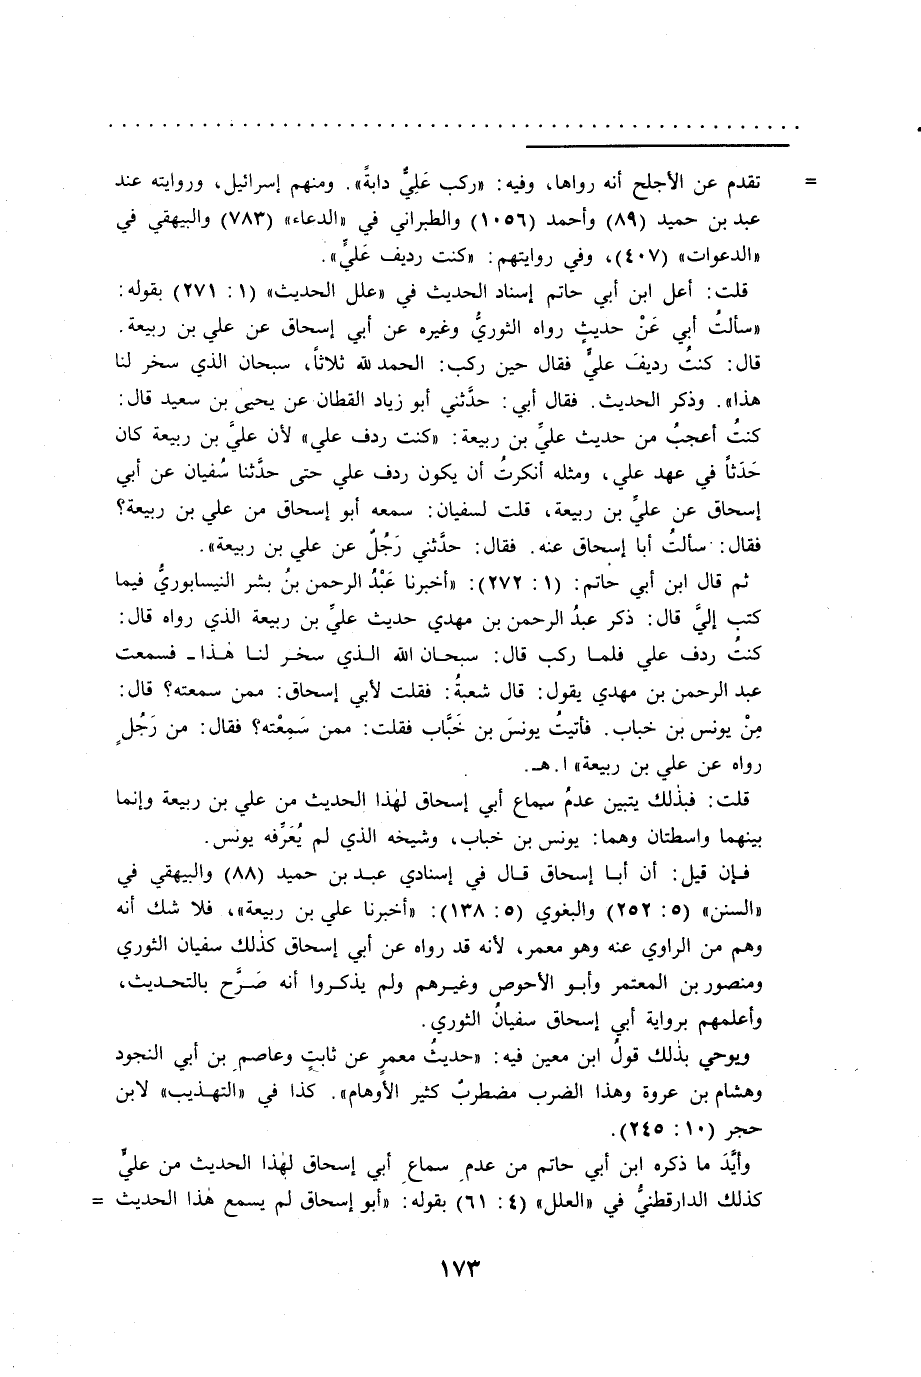 = تقدم عن الأجلح أنه رواها، وفيه: «ركب عَلِيٌّ دابةً». ومنهم إسرائيل، وروايته عند
عبد بن حميد (٨٩) وأحمد (١٠٥٦) والطبراني في «الدعاء» (٧٨٣) والبيهقي في
«الدعوات» (٤٠٧)، وفي روايتهم: «كنت رديف عَليٍّ».
قلت: أعل ابن أبي حاتم إسناد الحديث في «علل الحديث» (١: ٢٧١) بقوله:
«سألتُ أبي عَنْ حديثٍ رواه الثوريُّ وغيره عن أبي إسحاق عن علي بن ربيعة.
قال: كنتُ رديفَ عليٍّ فقال حين ركب: الحمد لله ثلاثاً، سبحان الذي سخر لنا
هذا». وذكر الحديث. فقال أبي: حدَّثني أبو زياد القطان عن يحيىٰ بن سعيد قال:
كنتُ أعجبُ من حديث عليِّ بن ربيعة: «كنت ردف علي» لأن عليَّ بن ربيعة كان
حَدَثاً في عهد علي، ومثله أنكرتُ أن يكون ردف علي حتى حدَّثنا سُفيان عن أبي
إسحاق عن عليِّ بن ربيعة، قلت لسفيان: سمعه أبو إسحاق من علي بن ربيعة؟
فقال: سألتُ أبا إسحاق عنه. فقال: حدَّثني رَجُلٌ عن علي بن ربيعة».
ثم قال ابن أبي حاتم: (١: ٢٧٢): «أخبرنا عَبْدُ الرحمن بنُ بشر النيسابوريُّ فيما
كتب إليَّ قال: ذكر عبدُ الرحمن بن مهدي حديث عليِّ بن ربيعة الذي رواه قال:
كنتُ ردف علي فلما ركب قال: سبحان الله الذي سخر لنا هٰذا ـ فسمعت
عبد الرحمن بن مهدي يقول: قال شعبةُ: فقلت لأبي إسحاق: ممن سمعته؟ قال:
مِنْ يونس بن خباب. فأتيتُ يونسَ بن خَبَّاب فقلت: ممن سَمِعْته؟ فقال: من رَجُلٍ
رواه عن علي بن ربيعة» ا.هـ.
قلت: فبذٰلك يتبين عدمُ سماع أبي إسحاق لهٰذا الحديث من علي بن ربيعة وإنما
بينهما واسطتان وهما: يونس بن خباب، وشيخه الذي لم يُعَرِّفه يونس.
فإن قيل: أن أبا إسحاق قال في إسنادي عبد بن حميد (٨٨) والبيهقي في
«السنن» (٥: ٢٥٢) والبغوي (٥: ١٣٨): «أخبرنا علي بن ربيعة»، فلا شك أنه
وهم من الراوي عنه وهو معمر، لأنه قد رواه عن أبي إسحاق كذلك سفيان الثوري
ومنصور بن المعتمر وأبو الأحوص وغيرهم ولم يذكروا أنه صَرَّح بالتحديث،
وأعلمهم برواية أبي إسحاق سفيانُ الثوري.
ويوحي بذلك قولُ ابن معين فيه: «حديثُ معمرٍ عن ثابتٍ وعاصمِ بن أبي النجود
وهشام بن عروة وهذا الضرب مضطربٌ كثير الأوهام». كذا في «التهذيب» لابن
حجر (١٠: ٢٤٥).
وأيَّدَ ما ذكره ابن أبي حاتم من عدمِ سماعِ أبي إسحاق لهٰذا الحديث من عليٍّ
كذلك الدارقطنيُّ في «العلل» (٤: ٦١) بقوله: «أبو إسحاق لم يسمع هٰذا الحديث =
١٧٣